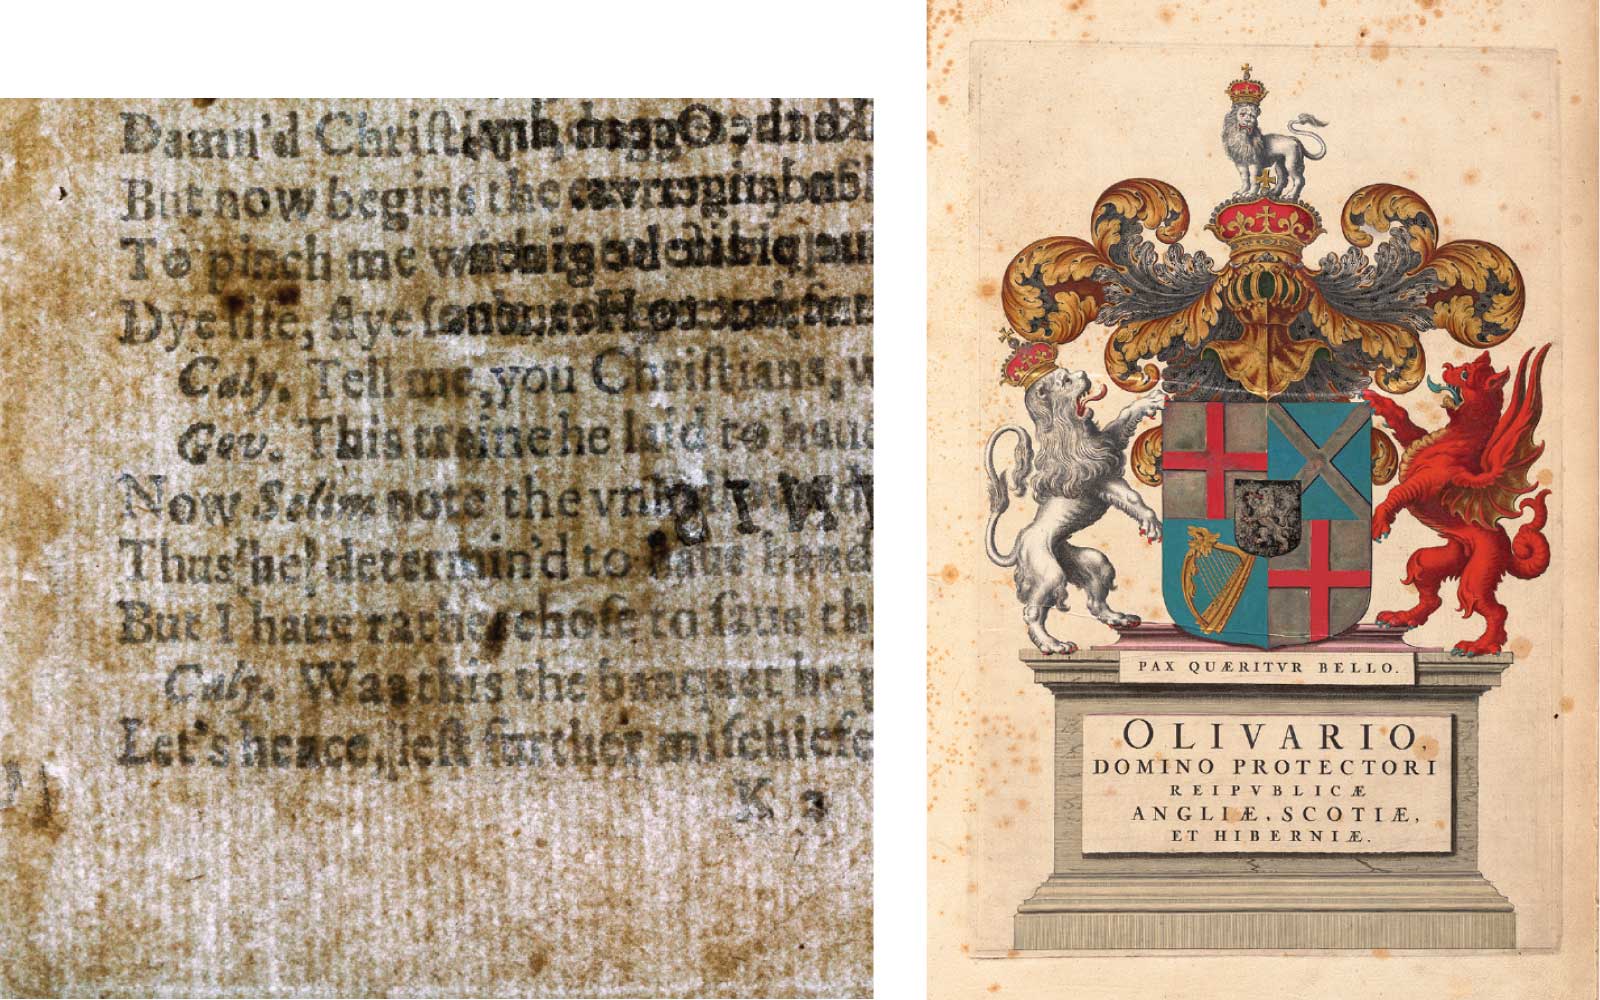 Damn'd Chriſti
But now begins the
To pinch me wi
Dye life, flye ſ
Caly. Tell me, you Chriſtians, w
Gov. This traine he laid to haue
Now Selim note the
Thus he determin'd to ſaue hand
But I haue rather choſe to ſaue th
Caly. Was this the banquet he p
Let's hence, leſt further miſchiefe
K 2
PAX QUÆRITVR BELLO.
OLIVARIO,
DOMINO PROTECTORI
REIPVBLICÆ
ANGLIÆ, SCOTIÆ,
ET HIBERNIÆ.